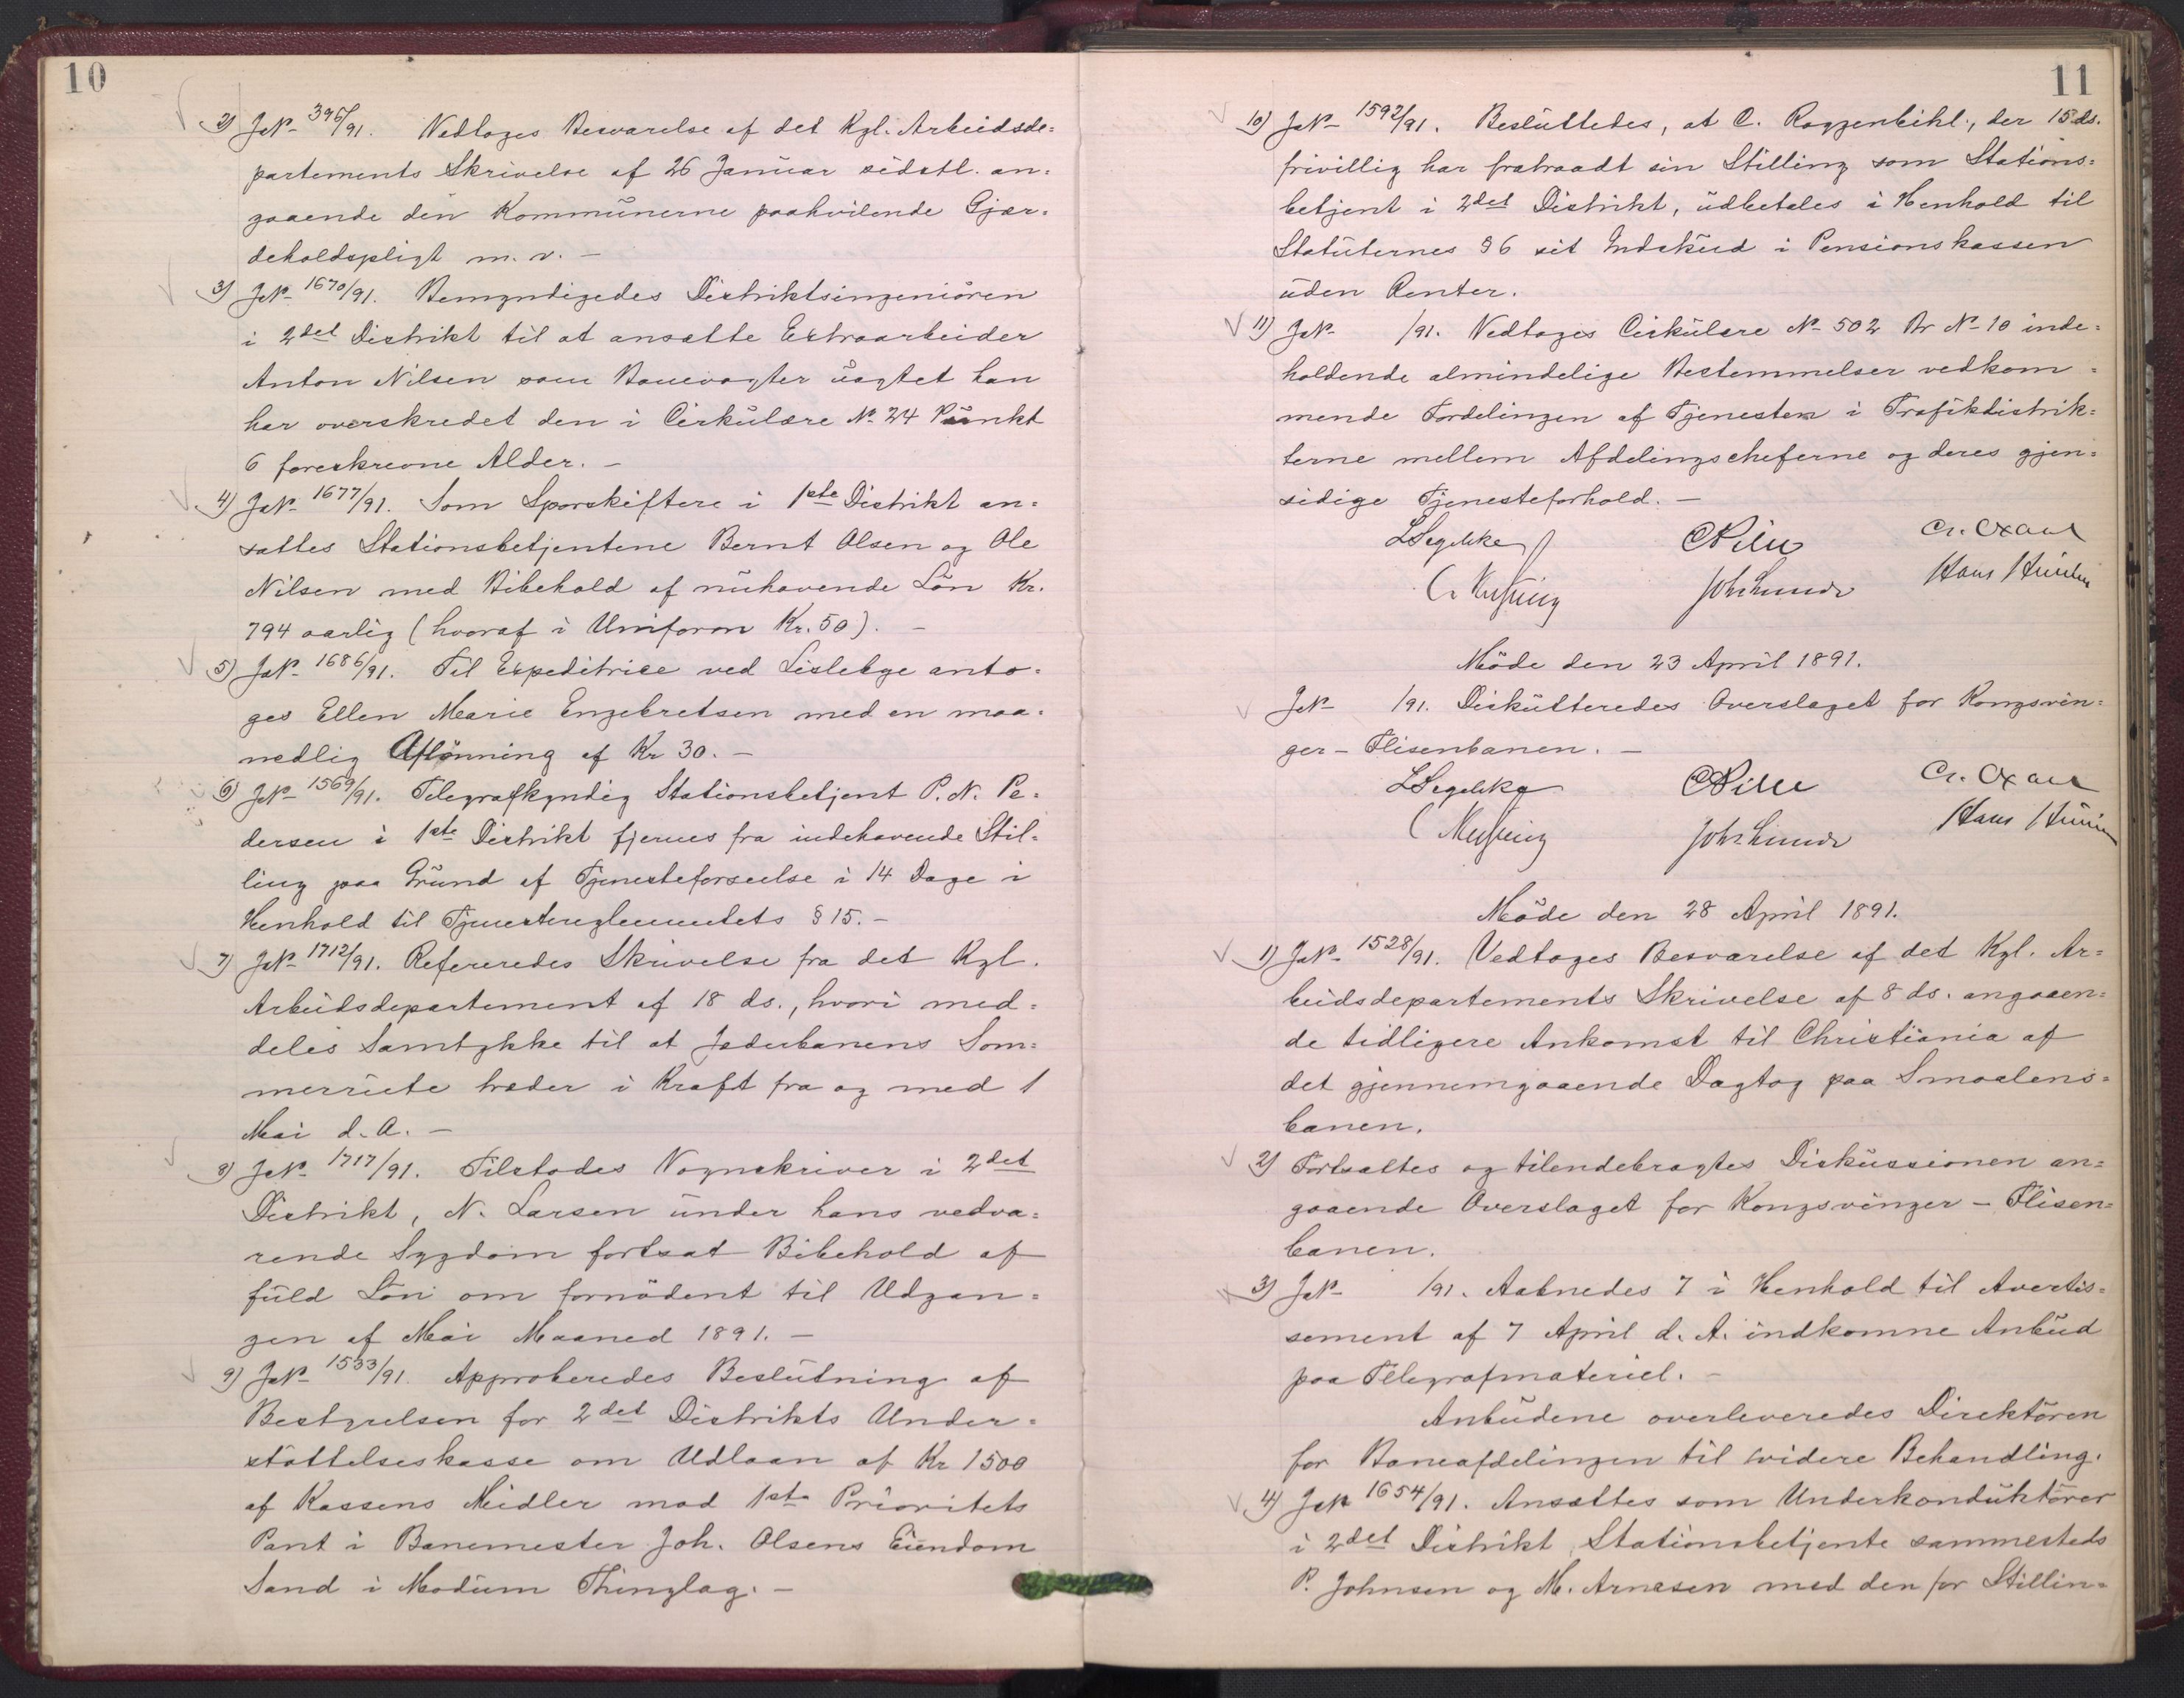 10
2) JN° 396/91. Vedtoges Besvarelse af det Kgl. Arbeidsde=
partements Skrivelse af 26 Januar sidstl. an=
gaaende den Kommunerne paahvilende Gjær=
deholdspligt m. v. –
3) JN° 1670/91. Bemyndigedes Distriktsingeniören
i 2det Distrikt til at ansætte Extraarbeider
Anton Nilsen som Banevogter uagtet han
har overskredet den i Cirkulære N° 24 Punkt
6 foreskrevne Alder. –
4) JN° 1677/91. Som Sporskiftere i 1ste Distrikt an=
sattes Stationsbetjentene Bernt Olsen og Ole
Nilsen med Bibehold af nuhavende Lön Kr.
794 aarlig (hvoraf i Uniform Kr. 50). –
5) JN° 1686/91. Til Expeditrice ved Lislebye anto=
ges Ellen Marie Engebretsen med en maa=
nedlig Aflönning af Kr 30. –
6) JN° 1569/91. Telegrafkyndig Stationsbetjent P. N. Pe=
dersen i 1ste Distrikt fjernes fra indehavende Stil=
ling paa Grund af Tjenesteforseelse i 14 Dage i
Henhold til Tjenestereglementets § 15. –
7) JN° 1712/91. Refereredes Skrivelse fra det Kgl.
Arbeidsdepartement af 18 ds., hvori med=
deles Samtykke til at Jæderbanens Som=
merruute træder i Kraft fra og med 1
Mai d. A. –
8) JN° 1717/91. Tilstodes Vognskriver i 2det
Distrikt, N. Larsen under hans vedva=
rende Sygdom fortsat Bibehold af
fuld Lön om fornödent til Udgan=
gen af Mai Maaned 1891. –
9) JN° 1533/91. Approberedes Beslutning af
Bestyrelsen for 2det Distrikts Under=
stöttelseskasse om Udlaan af Kr 1500
af Kassens Midler mod 1ste Prioritets
Pant i Banemester Joh. Olsens Eiendom
Sand i Modum Thinglag. –
11
10) JN° 1592/91. Besluttedes, at C. Roggenbihl, der 15 ds.
frivillig har fratraadt sin Stilling som Stations=
betjent i 2det Distrikt, udbetales i Henhold til
Statuternes § 6 sit Indskud i Pensionskassen
uden Renter.
11) JN° /91. Vedtoges Cirkulære N° 502 Br N° 10 inde=
holdende almindelige Bestemmelser vedkom=
mende Fordelingen af Tjenesten i Trafikdistrik=
terne mellem Afdelingscheferne og deres gjen=
sidige Tjenesteforhold. –
LSegelcke CPihl
Joh. Lunde Hans
Möde den 23 April 1891.
JN° /91. Diskutteredes Overslaget for Kongsvin=
ger – Flisenbanen. –
LSegelcke CPihl
Joh. Lunde Hans
Möde den 28 April 1891.
1) JN° 1528/91. Vedtoges Besvarelse af det Kgl. Ar=
beidsdepartements Skrivelse af 8 ds. angaaen=
de tidligere Ankomst til Christiania af
det gjennemgaaende Dagtog paa Smaalens=
banen.
2) Fortsattes og tilendebragtes Diskussionen an=
gaaende Overslaget for Kongsvinger – Flisen=
banen.
3) JN° /91. Aabnedes 7 i Henhold til Avertis=
sement af 7 April d. A. indkomne Anbud
paa Telegrafmateriel. –
Anbudene overleveredes Direktören
for Baneafdelingen til videre Behandling.
4) JN° 1654/91. Ansattes som Underkonduktörer
i 2det Distrikt Stationsbetjente sammesteds
P. Johnsen og M. Arnesen med den for Stillin=